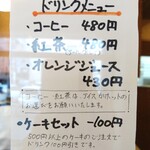 ドリンクメニュー
・コーヒー 480円
・紅茶 480円
・オレンジジュース
480円
コーヒー・紅茶は、アイスかホットの
お選びをお願いいたします。
・ケーキセット -100円
500円以上のケーキのご注文で
ドリンク100円引きです。